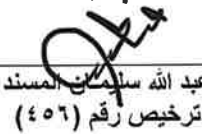 عبد الله سليمان المسند
ترخيص رقم (٤٥٦)